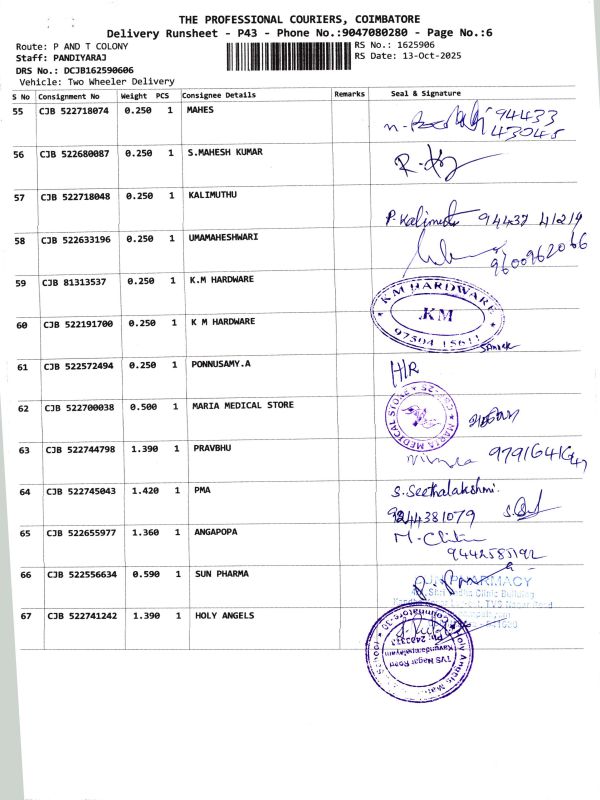 THE PROFESSIONAL COURIERS, COIMBATORE
Delivery Runsheet - P43 - Phone No.:9047080280 - Page No.:6
Route: P AND T COLONY
RS No.: 1625906
Staff: PANDIYARAJ
RS Date: 13-Oct-2025
DRS No.: DCJB162590606
Vehicle: Two Wheeler Delivery
S No Consignment No Weight PCS Consignee Details Remarks Seal & Signature
55 CJB 522718074 0.250 1 MAHES
94433
43045
56 CJB 522680087 0.250 1 S.MAHESH KUMAR
57 CJB 522718048 0.250 1 KALIMUTHU
P. Kalimuthu 94437 41219
58 CJB 522633196 0.250 1 UMAMAHESHWARI
9600962066
59 CJB 81313537 0.250 1 K.M HARDWARE
KM HARDWARE
KM
97504 15611
60 CJB 522191700 0.250 1 K M HARDWARE
61 CJB 522572494 0.250 1 PONNUSAMY.A
H/R
62 CJB 522700038 0.500 1 MARIA MEDICAL STORE
MARIA MEDICAL STORE
63 CJB 522744798 1.390 1 PRAVBHU
64 CJB 522745043 1.420 1 PMA
S. Seethalakshmi.
9244381079
65 CJB 522655977 1.360 1 ANGAPOPA
9442585192
66 CJB 522556634 0.590 1 SUN PHARMA
PHARMACY
Clinic Building
TVS Nagar Road
67 CJB 522741242 1.390 1 HOLY ANGELS
Holy Angels
TVS Nagar Road
Kavundampalayam